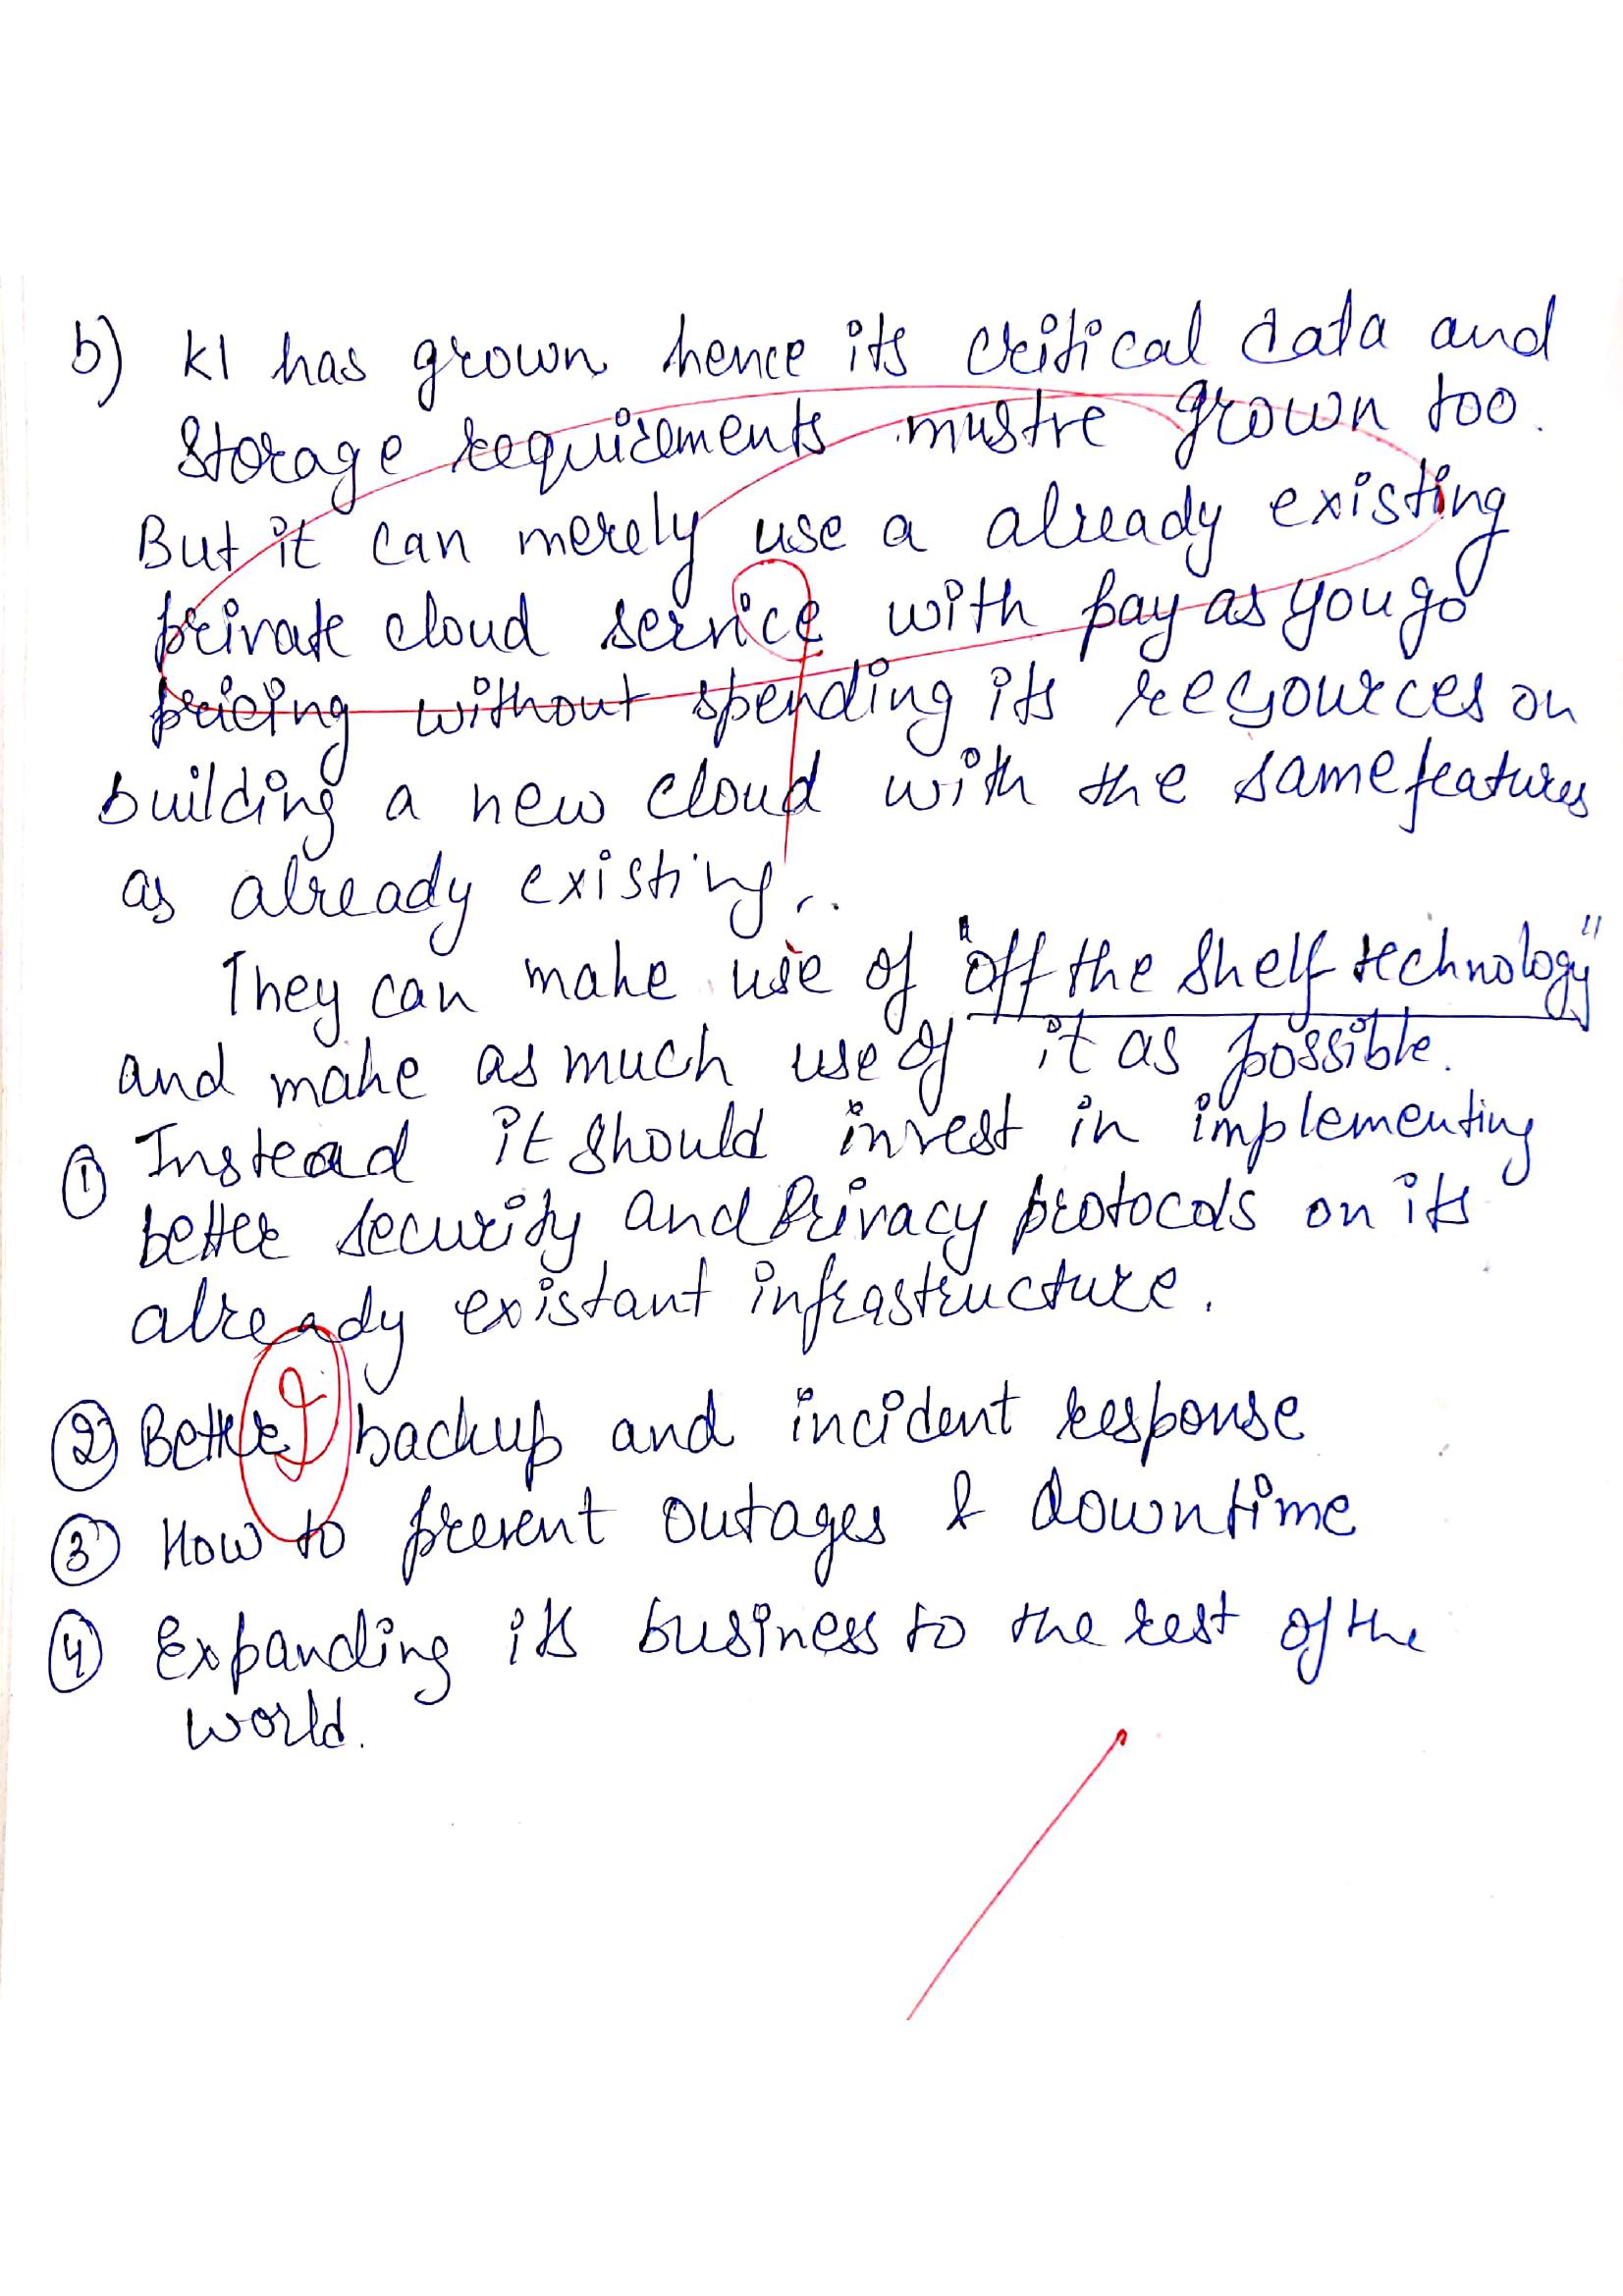 b) KI has grown hence its critical data and
Storage requirements mustve grown too.
But it can merely use a already existing
private cloud service with pay as you go
pricing without spending its resources on
building a new cloud with the same features
as already existing.
They can make use of "off the shelf technology"
and make as much use of it as possible.
① Instead it should invest in implementing
better security and Privacy protocols on its
already existant infrastructure.
② Better backup and incident response
③ How to prevent outages & downtime
④ Expanding its business to the rest of the
world.